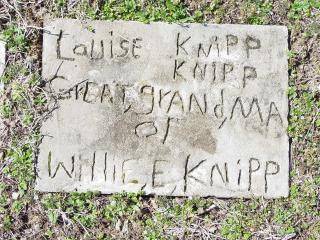 Louise Knipp
Knipp
Great,grand,ma
of
Willie,E,Knipp